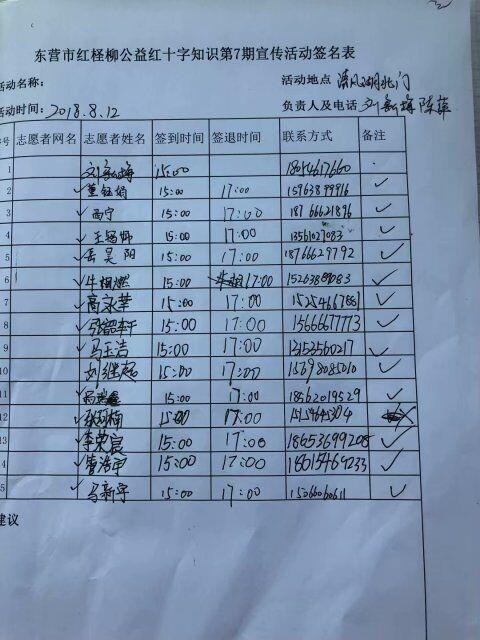 东营市红柽柳公益红十字知识第7期宣传活动签名表
活动名称: 活动地点 清风湖北门
活动时间: 2018.8.12 负责人及电话 陈萍
序号 志愿者网名 志愿者姓名 签到时间 签退时间 联系方式 备注
1 15:00 18054617660
2 15:00 17:00 15963899916 ✓
3 西宁 15:00 17:00 18766621896 ✓
4 15:00 17:00 13561027083 ✓
5 岳昊阳 15:00 17:00 18766629792 ✓
6 牛相燃 15:00 17:00 ✓
7 高永苹 15:00 17:00 ✓
8 15:00 17:00 15666677773 ✓
9 马玉洁 15:00 17:00 13153560217 ✓
10 刘继志 15:00 17:00 15698085010 ✓
11 15:00 17:00 18562019529 ✓
12 15:00 17:00
13 李荣宸 15:00 17:00 18653699208 ✓
14 曹浩宇 15:00 17:00 18015469233 ✓
15 马新宇 15:00 17:00 15066060611 ✓
建议